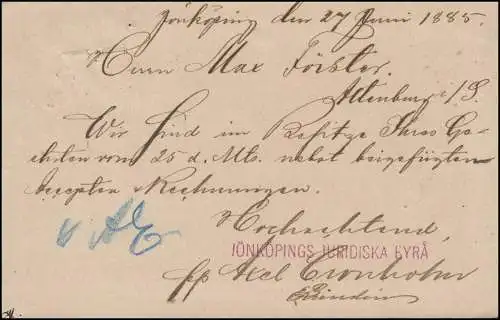 Jönköping den 27 Juni 1885.
Herrn Max Förster.
Altenburg i/S.
Wir sind im Besitze Ihres Ge-
ehrten vom 25 d. Mts. nebst beigefügten
Accepten & Rechnungen.
Hochachtend,
JÖNKÖPINGS JURIDISKA BYRÅ
pp Axel Cronholm